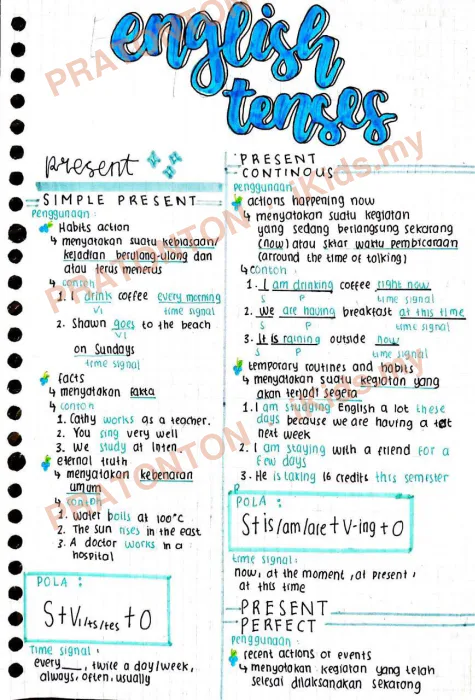 english
tenses
present
SIMPLE PRESENT
penggunaan :
Habits action
↳ menyatakan suatu kebiasaan/
kejadian berulang-ulang dan
atau terus menerus
↳ contoh
1. I drink coffee every morning
V1 time signal
2. Shawn goes to the beach
V1
on Sundays
time signal
facts
↳ menyatakan fakta
↳ contoh
1. Cathy works as a teacher.
2. You sing very well
3. We study at listen.
eternal truth
↳ menyatakan kebenaran
umum
↳ contoh
1. water boils at 100°C
2. The sun rises in the east
3. A doctor works in a
hospital
POLA :
S+V1/ts/tes +O
Time signal :
every___, twice a day/week,
always, often, usually
PRESENT
CONTINOUS
penggunaan :
actions happening now
↳ menyatakan suatu kegiatan
yang sedang berlangsung sekarang
(now) atau sktar waktu pembicaraan
(around the time of talking)
↳ contoh :
1. I am drinking coffee right now
S P time signal
2. We are having breakfast at this time
S P time signal
3. It is raining outside now
S P time signal
temporary routines and habits
↳ menyatakan suatu kegiatan yang
akan terjadi segera
1. I am studying English a lot these
days because we are having a test
next week
2. I am staying with a friend for a
few days
3. He is taking 16 credits this semister
P
POLA :
S+is/am/are+V-ing+O
time signal :
now, at the moment, at present,
at this time
PRESENT
PERFECT
penggunaan :
recent actions or events
↳ menyatakan kegiatan yang telah
selesai dilaksanakan sekarang
PRATONTON - iKids.my
PRATONTON - iKids.my
PRATONTON - iKids.my